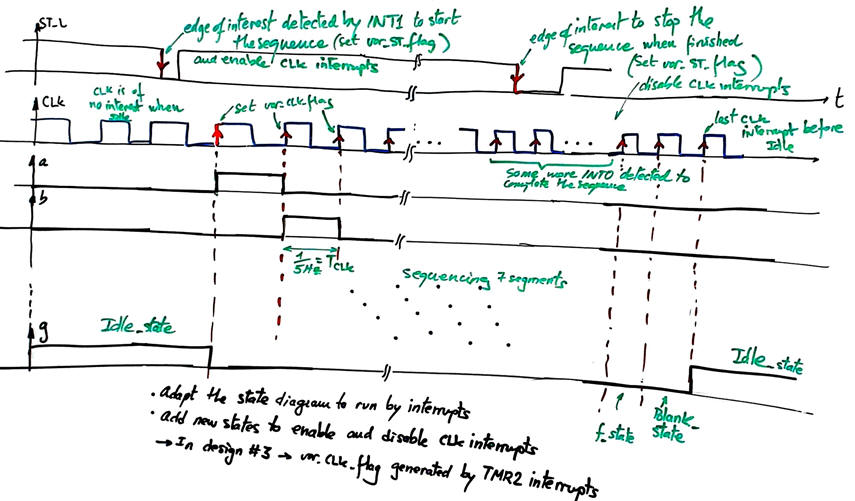 ST_L
edge of interest detected by INT1 to start
the sequence (set var_ST_flag)
and enable CLK interrupts
edge of interest to stop the
sequence when finished
(set var_ST_flag)
disable CLK interrupts
t
CLK
CLK is of
no interest when
idle
set var_CLK_flag
last CLK
interrupt before
Idle
Some more INT0 detected to
complete the sequence
a
b
1/5Hz = TCLK
sequencing 7 segments
g
Idle_state
Idle_state
f_state
Blank_
state
• Adapt the state diagram to run by interrupts
• Add new states to enable and disable CLK interrupts
→ In design #3 → var_CLK_flag generated by TMR2 interrupts